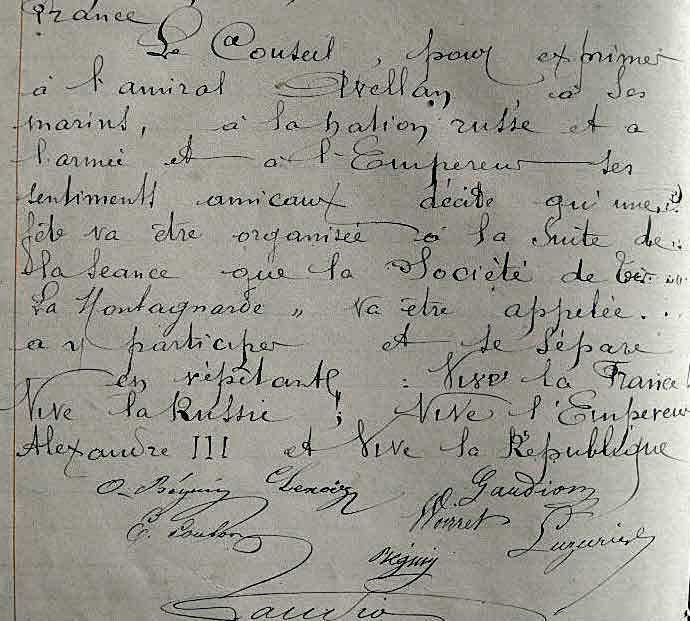 France
Le Conseil, pour exprimer
à l'amiral Avellan, à ses
marins, à la nation russe et a
l'armée et à l'Empereur ses
sentiments amicaux décide qu'une
fête va être organisée à la suite de
la séance que la Société de
La Montagnarde " va être appelée
a y participer et se sépare
en répétant : Vive la France!
Vive la Russie ; Vive l'Empereur
Alexandre III et Vive la République
O. Béguin Lenoir Gaudion
Béguin